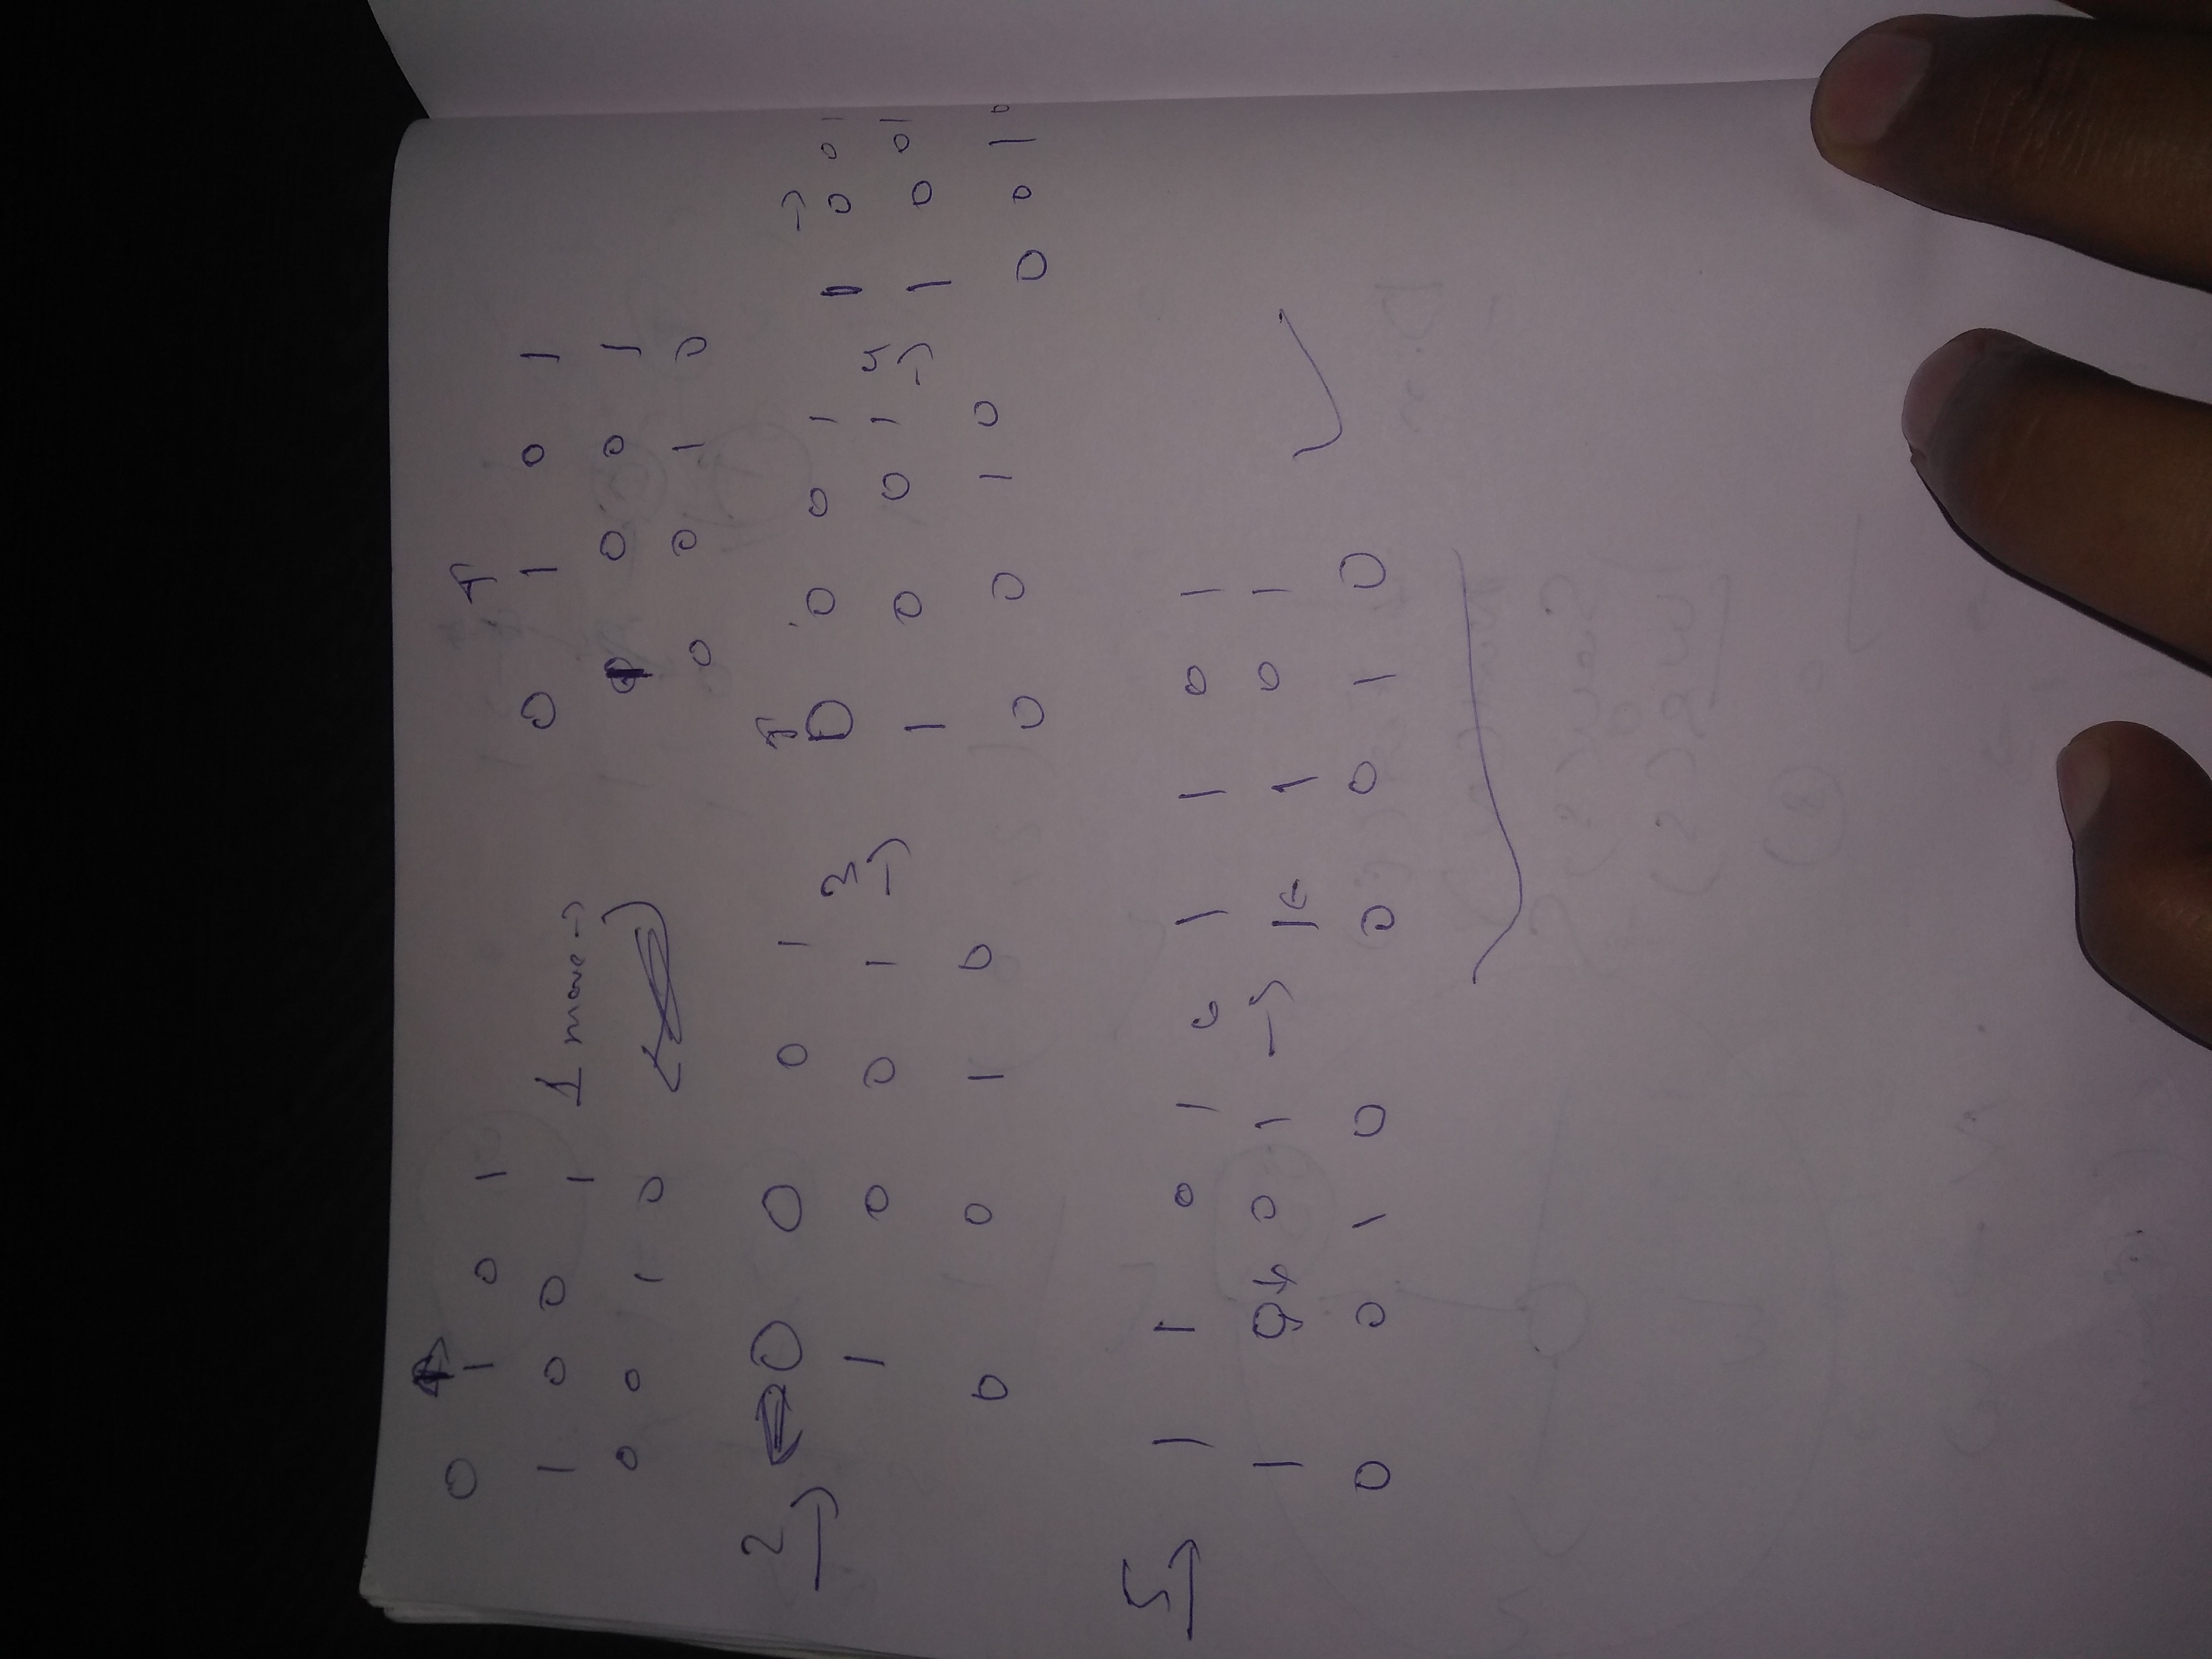 0 1 0 1
1 0 0 1 1 move →
0 0 1 0
↑
0 1 0 1
1 0 0 1
0 0 1 0
2 → 0 0 0 1
1 0 0 1
0 0 1 0
3 →
↑
0 0 0 1
1 0 0 1
0 0 1 0
4 →
→
1 0 0 1
1 0 0 1
0 0 1 0
5 → 1 1 0 1
1 0 ↓ 0 1
0 0 1 0
6 →
1 1 0 1
1 ← 1 0 1
0 0 1 0